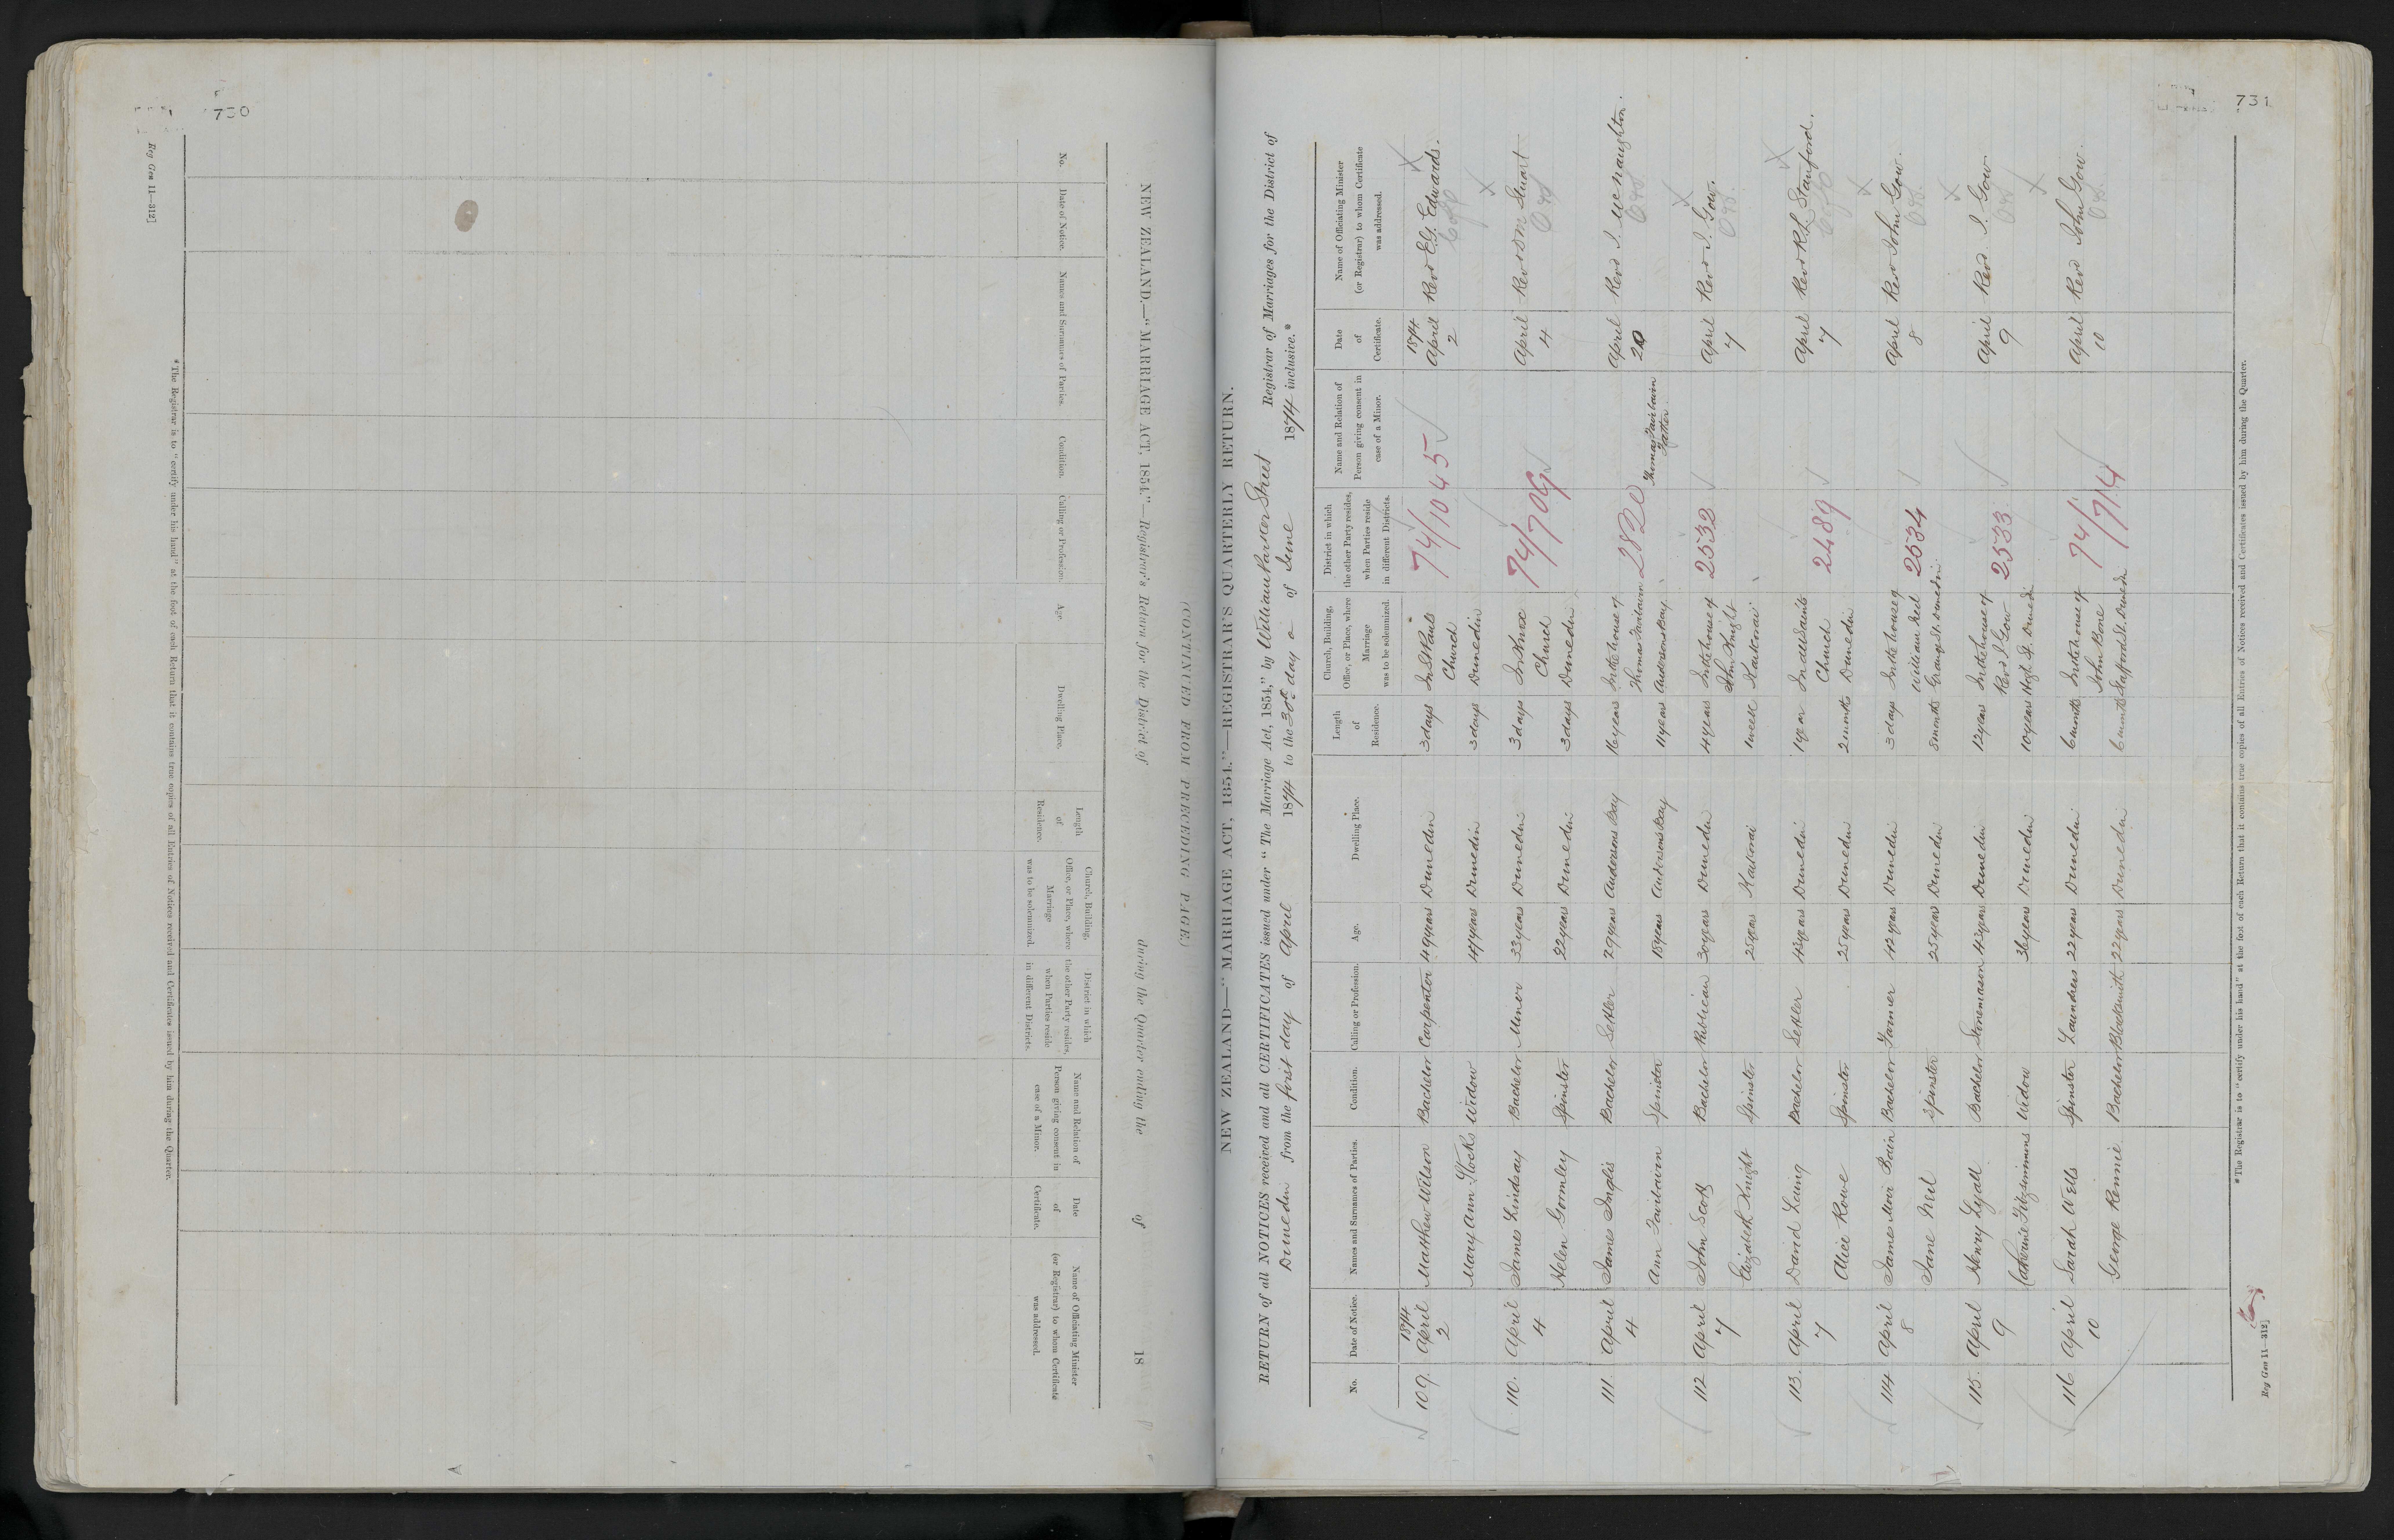 730
Reg Gen 11—312]
NEW ZEALAND.—"MARRIAGE ACT, 1854."—Registrar's Return for the District of during the Quarter ending the of 18
(CONTINUED FROM PRECEDING PAGE.)
No.
Date of Notice.
Names and Surnames of Parties.
Condition.
Calling or Profession.
Age.
Dwelling Place.
Length
of
Residence.
Church, Building,
Office, or Place, where
Marriage
was to be solemnized.
District in which
the other Party resides,
when Parties reside
in different Districts.
Name and Relation of
Person giving consent in
case of a Minor.
Date
of
Certificate.
Name of Officiating Minister
(or Registrar) to whom Certificate
was addressed.
*The Registrar is to "certify under his hand" at the foot of each Return that it contains true copies of all Entries of Notices received and Certificates issued by him during the Quarter.
731
NEW ZEALAND—"MARRIAGE ACT, 1854."—REGISTRAR'S QUARTERLY RETURN.
RETURN of all NOTICES received and all CERTIFICATES issued under "The Marriage Act, 1854," by William Parker Street Registrar of Marriages for the District of
Dunedin from the first day of April 1874 to the 30th day of June 1874 inclusive.*
No.
Date of Notice.
Names and Surnames of Parties.
Condition.
Calling or Profession.
Age.
Dwelling Place.
Length
of
Residence.
Church, Building,
Office, or Place, where
Marriage
was to be solemnized.
District in which
the other Party resides,
when Parties reside
in different Districts.
Name and Relation of
Person giving consent in
case of a Minor.
Date
of
Certificate.
Name of Officiating Minister
(or Registrar) to whom Certificate
was addressed.
1874 1874
109. April 2 Matthew Wilson Bachelor Carpenter 49 years Dunedin 3 days In St Pauls Church 74/1045 April 2 Revd E.G. Edwards.
Mary Ann Stocks Widow 47 years Dunedin 3 days Dunedin
110. April 4 James Lindsay Bachelor Miner 33 years Dunedin 3 days In Knox Church 74/709 April 4 Revd D M Stuart
Helen Gormley Spinster 22 years Dunedin 3 days Dunedin
111. April 4 James Inglis Bachelor Settler 29 years Andersons Bay 16 years In the house of Thomas Fairbairn 2820 Thomas Fairbairn Father April 20 Revd J. McNaughton.
Ann Fairbairn Spinster 18 years Andersons Bay 11 years Andersons Bay
112 April 7 John Scott Bachelor Publican 30 years Dunedin 4 years In the house of John Knight 2532 April 7 Revd J. Gow.
Elizabeth Knight Spinster 25 years Kaikorai 1 week Kaikorai
113. April 7 David Laing Bachelor Settler 43 years Dunedin 1 year In All Saints Church 2489 April 7 Revd R.L. Stanford.
Alice Rowe Spinster 25 years Dunedin 2 months Dunedin
114 April 8 James Muir Bain Bachelor Farmer 42 years Dunedin 3 days In the house of William Neil 2534 April 8 Revd John Gow.
Jane Neil Spinster 25 years Dunedin 8 months Grange St. Dunedin
115. April 9 Henry Lyall Bachelor Stonemason 43 years Dunedin 12 years In the house of Revd J. Gow 2533 April 9 Revd J. Gow
Catherine Fitzsimmons Widow 36 years Dunedin 10 years High St. Dunedin
116 April 10 Sarah Wells Spinster Laundress 22 years Dunedin 6 months In the house of John Bone 74/714 April 10 Revd John Gow.
George Rennie Bachelor Blacksmith 22 years Dunedin 6 months Stafford St. Dunedin
*The Registrar is to "certify under his hand" at the foot of each Return that it contains true copies of all Entries of Notices received and Certificates issued by him during the Quarter.
Reg Gen 11—312]